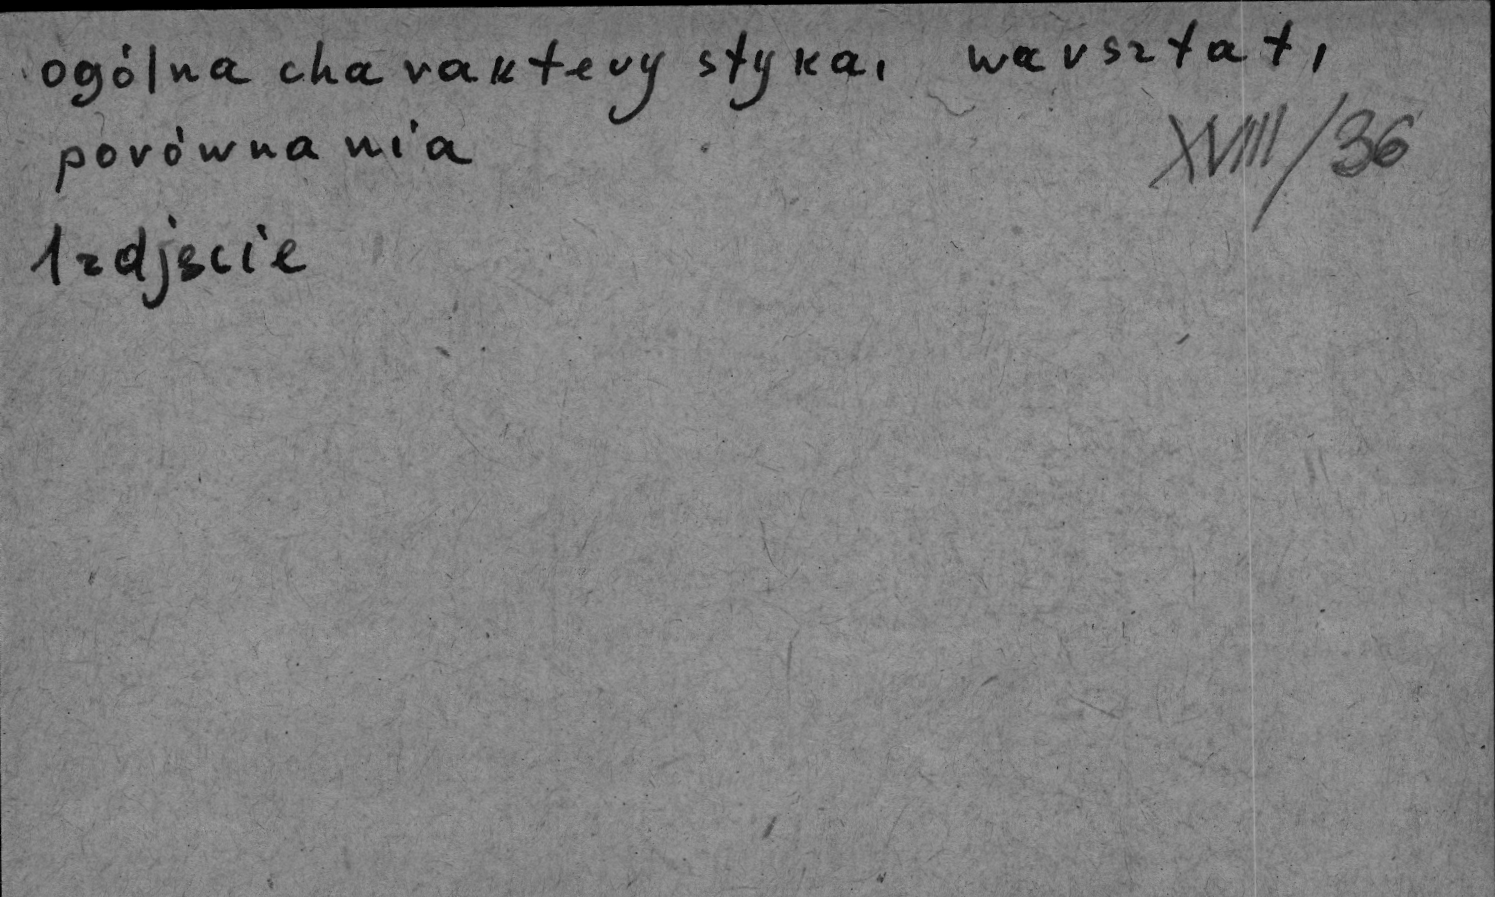 ogólna charakterystyka, warsztat,
porównania
XVIII/36
1 zdjęcie